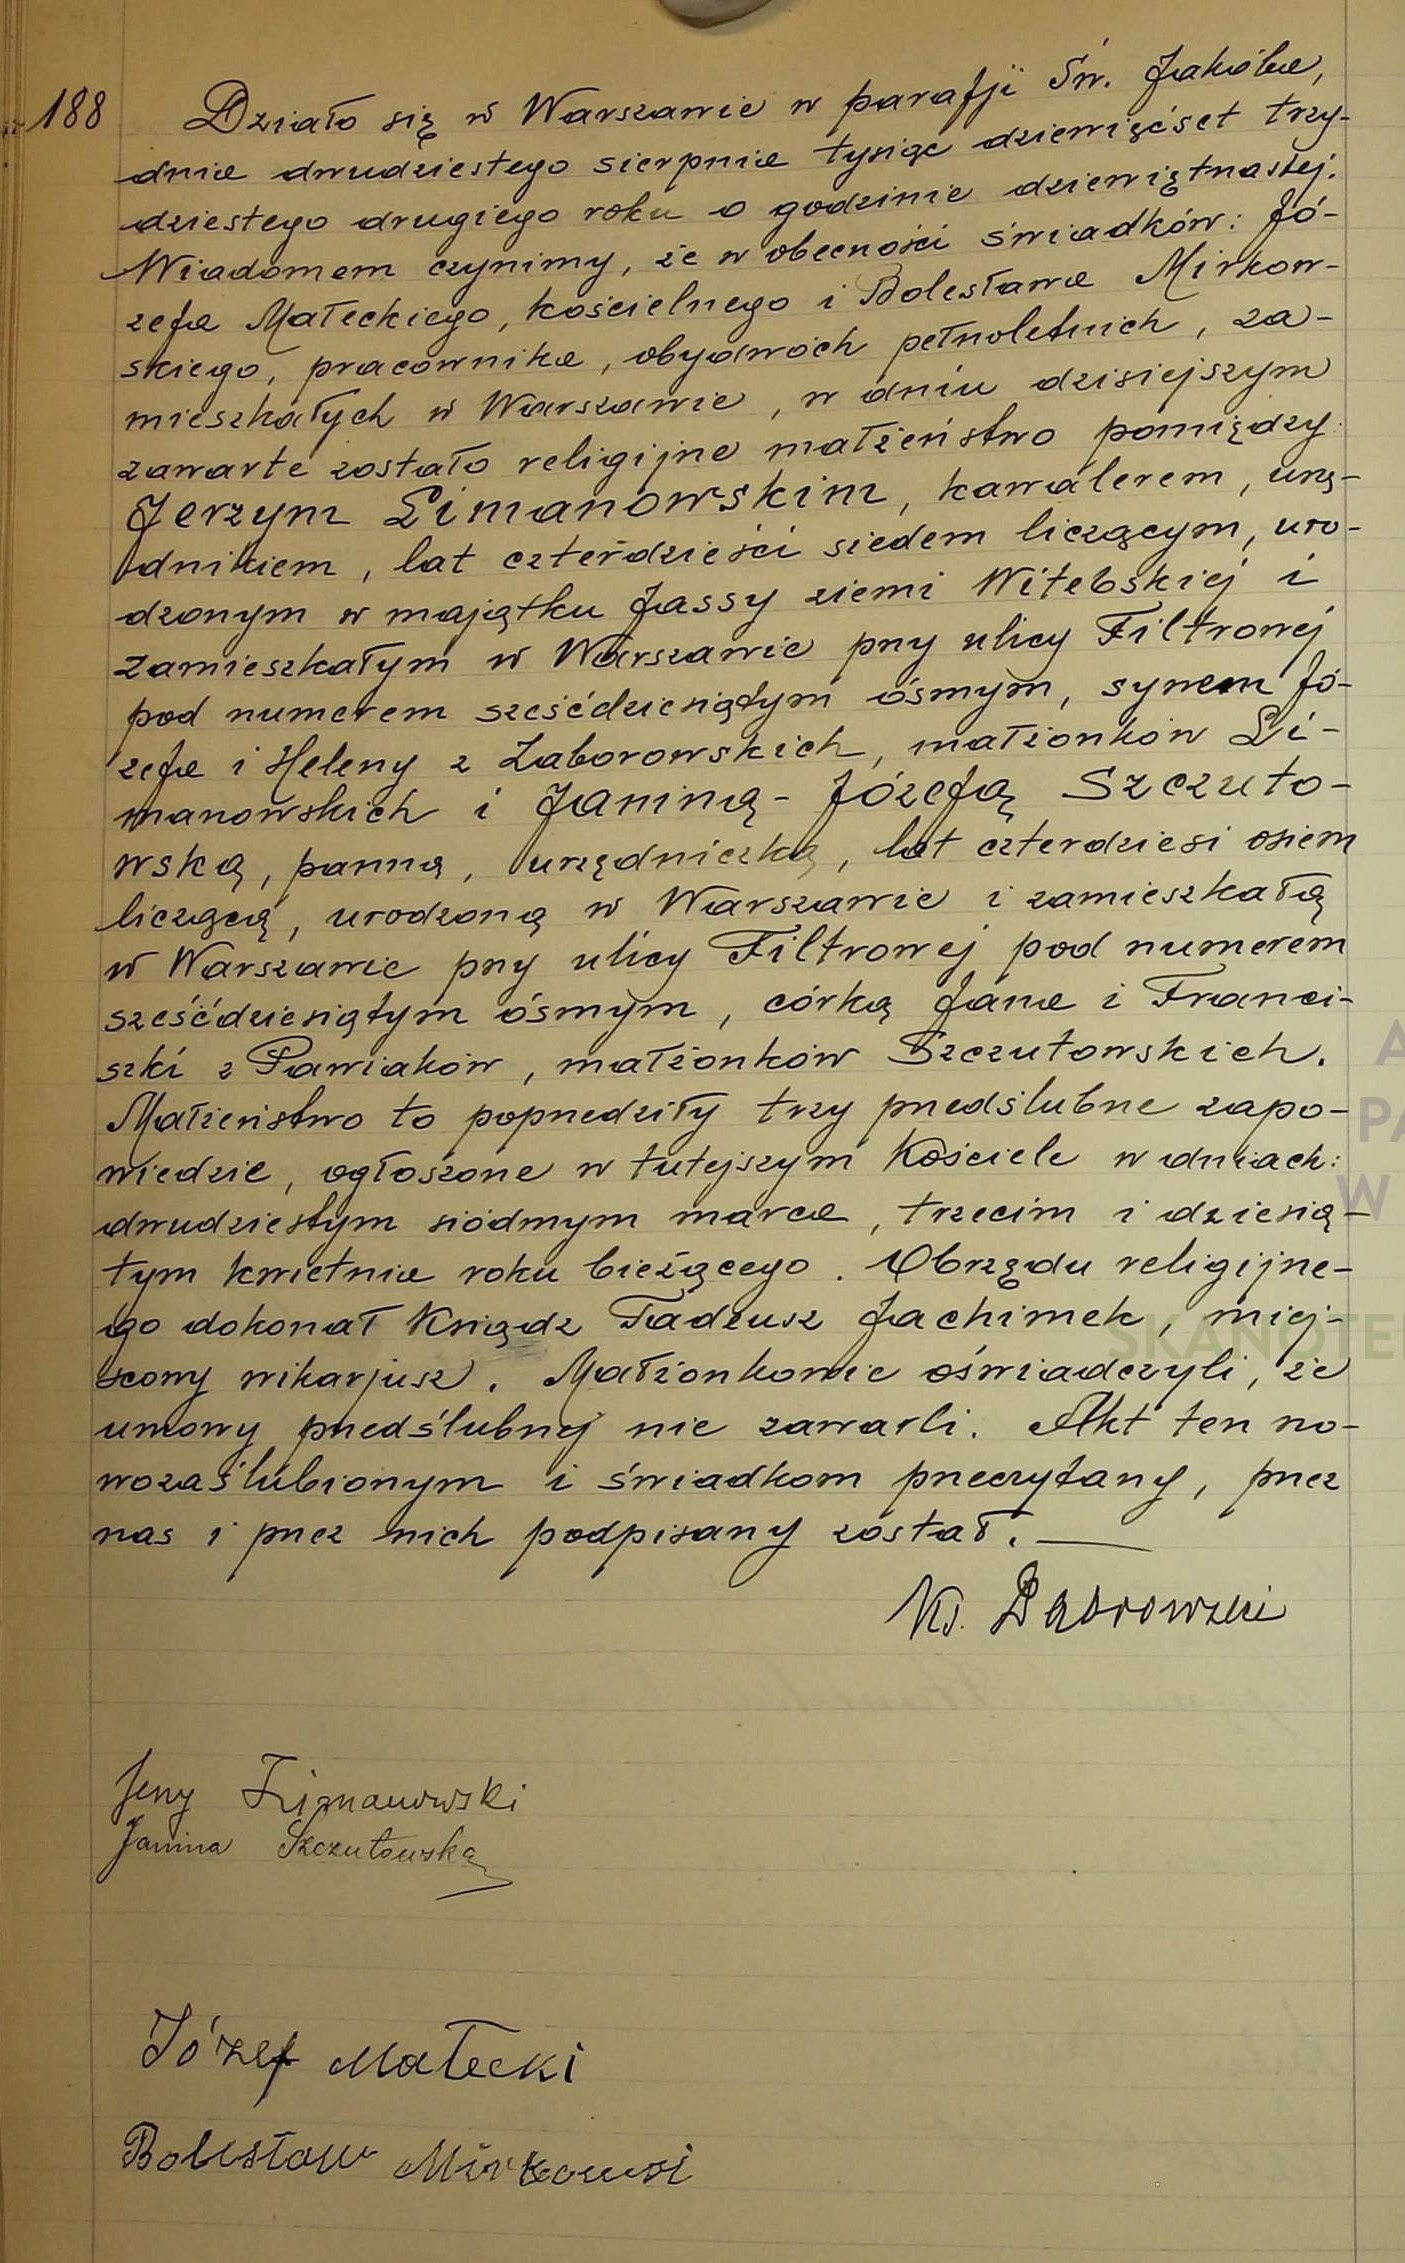 188 Działo się w Warszawie w parafji Św. Jakóba,
dnia dwudziestego sierpnia tysiąc dziewięćset trzy-
dziestego drugiego roku o godzinie dziewiętnastej.
Wiadomem czynimy, że w obecności świadków: Jó-
zefa Małeckiego, kościelnego i Bolesława Mirkow-
skiego, pracownika, obydwóch pełnoletnich, za-
mieszkałych w Warszawie, w dniu dzisiejszym
zawarte zostało religijne małżeństwo pomiędzy
Jerzym Limanowskim, kawalerem, urzę-
dnikiem, lat czterdzieści siedem liczącym, uro-
dzonym w majątku Jassy ziemi Witebskiej i
zamieszkałym w Warszawie przy ulicy Filtrowej
pod numerem sześćdziesiątym ósmym, synem Jó-
zefa i Heleny z Zaborowskich, małżonków Li-
manowskich i Janiną-Józefą Szczuto-
wską, panną, urzędniczką, lat czterdzieści osiem
liczącą, urodzoną w Warszawie i zamieszkałą
w Warszawie przy ulicy Filtrowej pod numerem
sześćdziesiątym ósmym, córką Jana i Franci-
szki z Pawiaków, małżonków Szczutowskich.
Małżeństwo to poprzedziły trzy przedślubne zapo-
wiedzie, ogłoszone w tutejszym Kościele w dniach:
dwudziestym siódmym marca, trzecim i dziesią-
tym kwietnia roku bieżącego. Obrzędu religijne-
go dokonał Ksiądz Tadeusz Jachimek, miej-
scowy wikarjusz. Małżonkowie oświadczyli, że
umowy przedślubnej nie zawarli. Akt ten no-
wozaślubionym i świadkom przeczytany, przez
nas i przez nich podpisany został.
Ks. Dąbrowski
Jerzy Limanowski
Janina Szczutowska
Józef Małecki
Bolesław Mirkowski
A
PA
W
SKANOTE